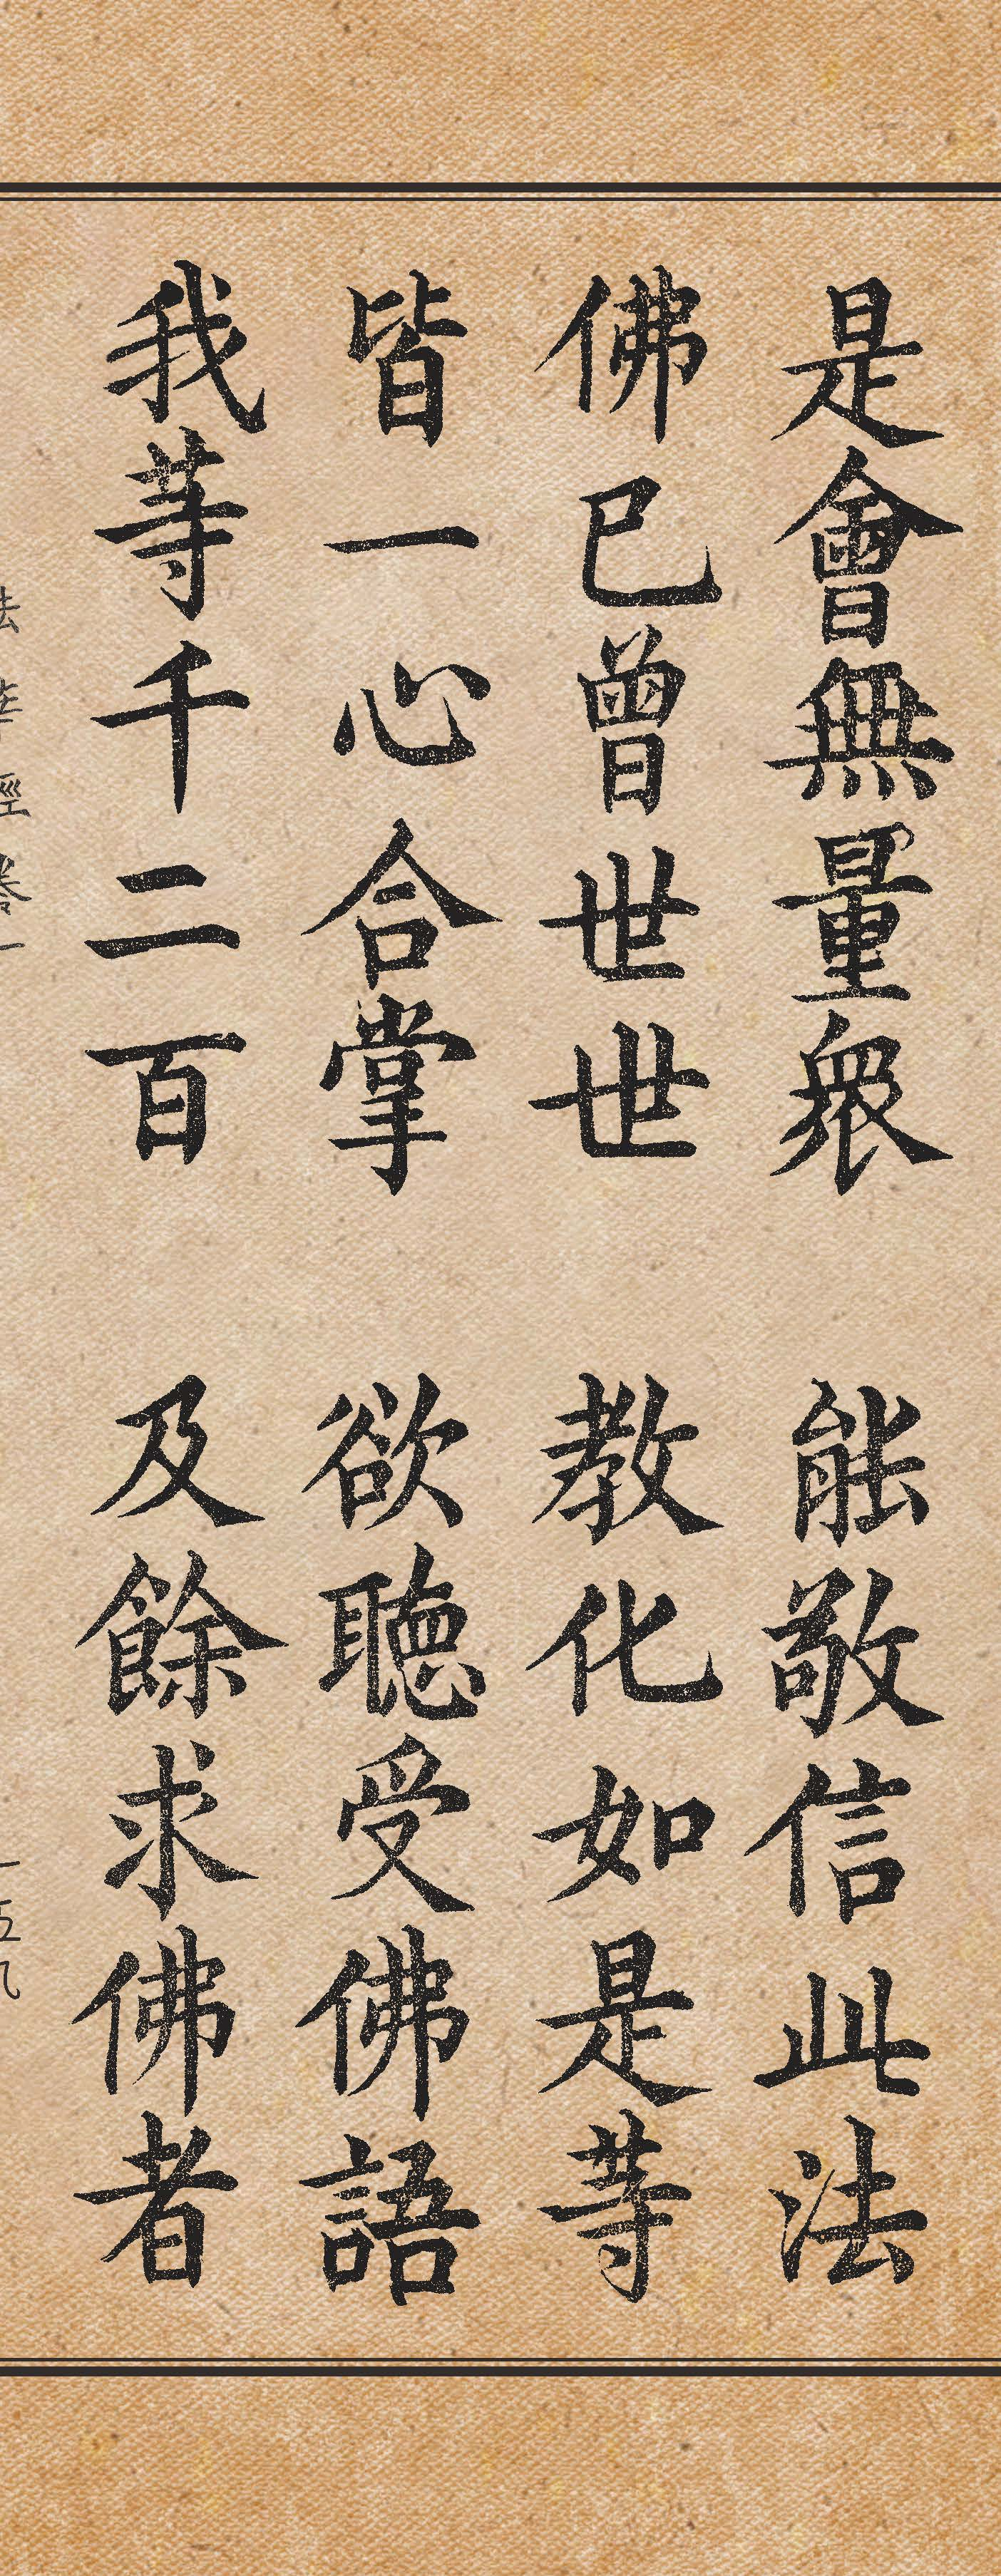 是會無量衆　能敬信此法
佛已曾世世　教化如是等
皆一心合掌　欲聽受佛語
我等千二百　及餘求佛者
法華經卷一　一五九